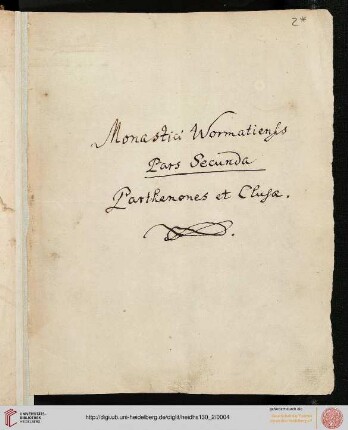 2*
Monastici Wormatiensis
Pars Secunda
Parthenones et Clusæ.
UNIVERSITÄTS-
BIBLIOTHEK
HEIDELBERG
http://digi.ub.uni-heidelberg.de/diglit/heidhs130_2/0004